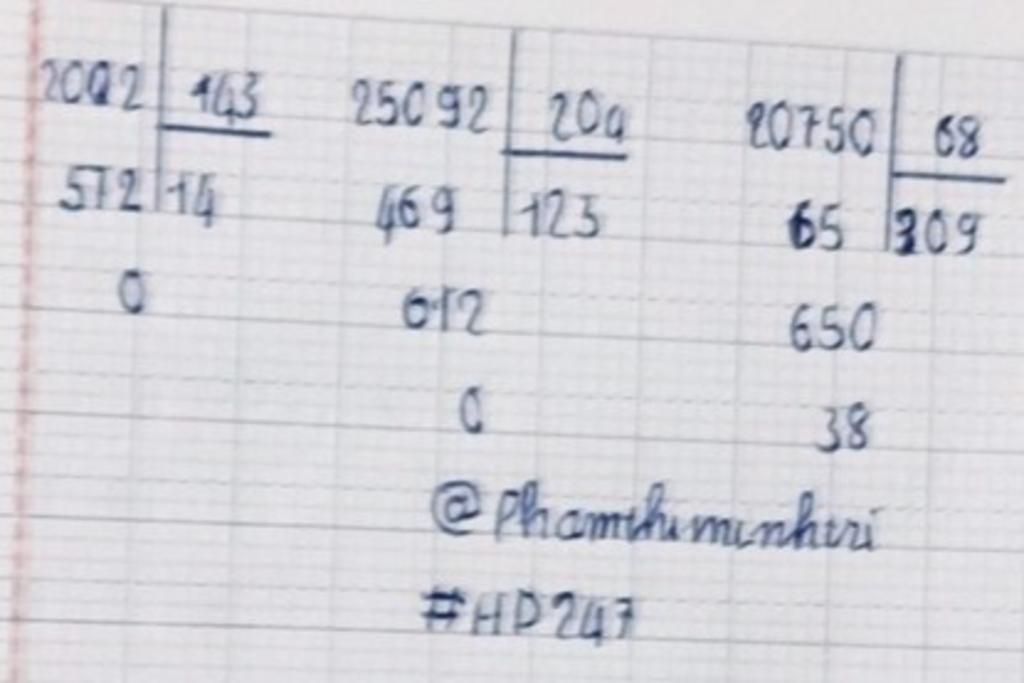 2002 143 25092 204 20750 68
572 14 469 123 65 309
0 612 650
0 38
#HD247